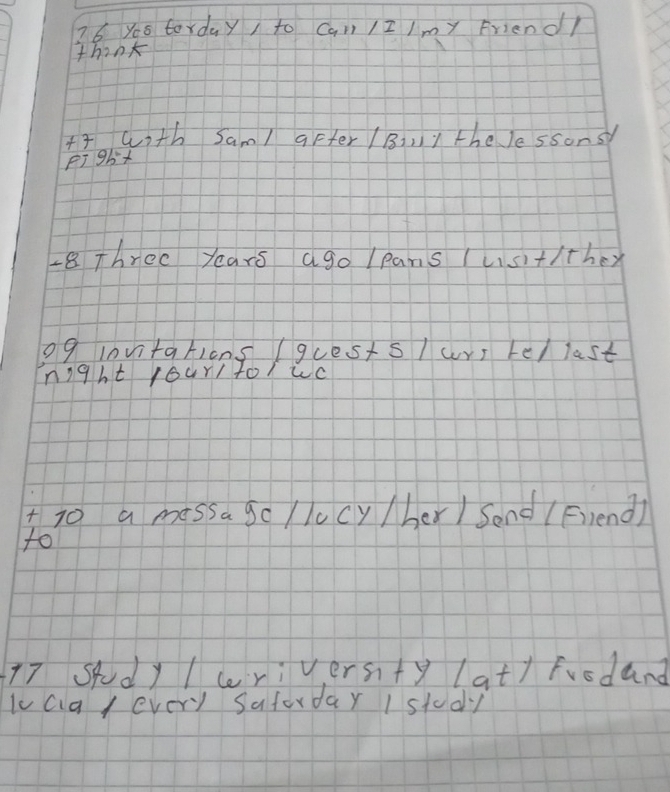 ?6 yesterday / to call / I / my Friend /
think
+7 with sam / after / Billy the lessons /
Fight
-8 Three years ago / paris / visit / they
?9 invitations / guests / write / last
night / our / to / we
+ 10 a message / lucy / her / send / Friend /
to
-11 study / university / at / Fred and
lucia / every saturday / study